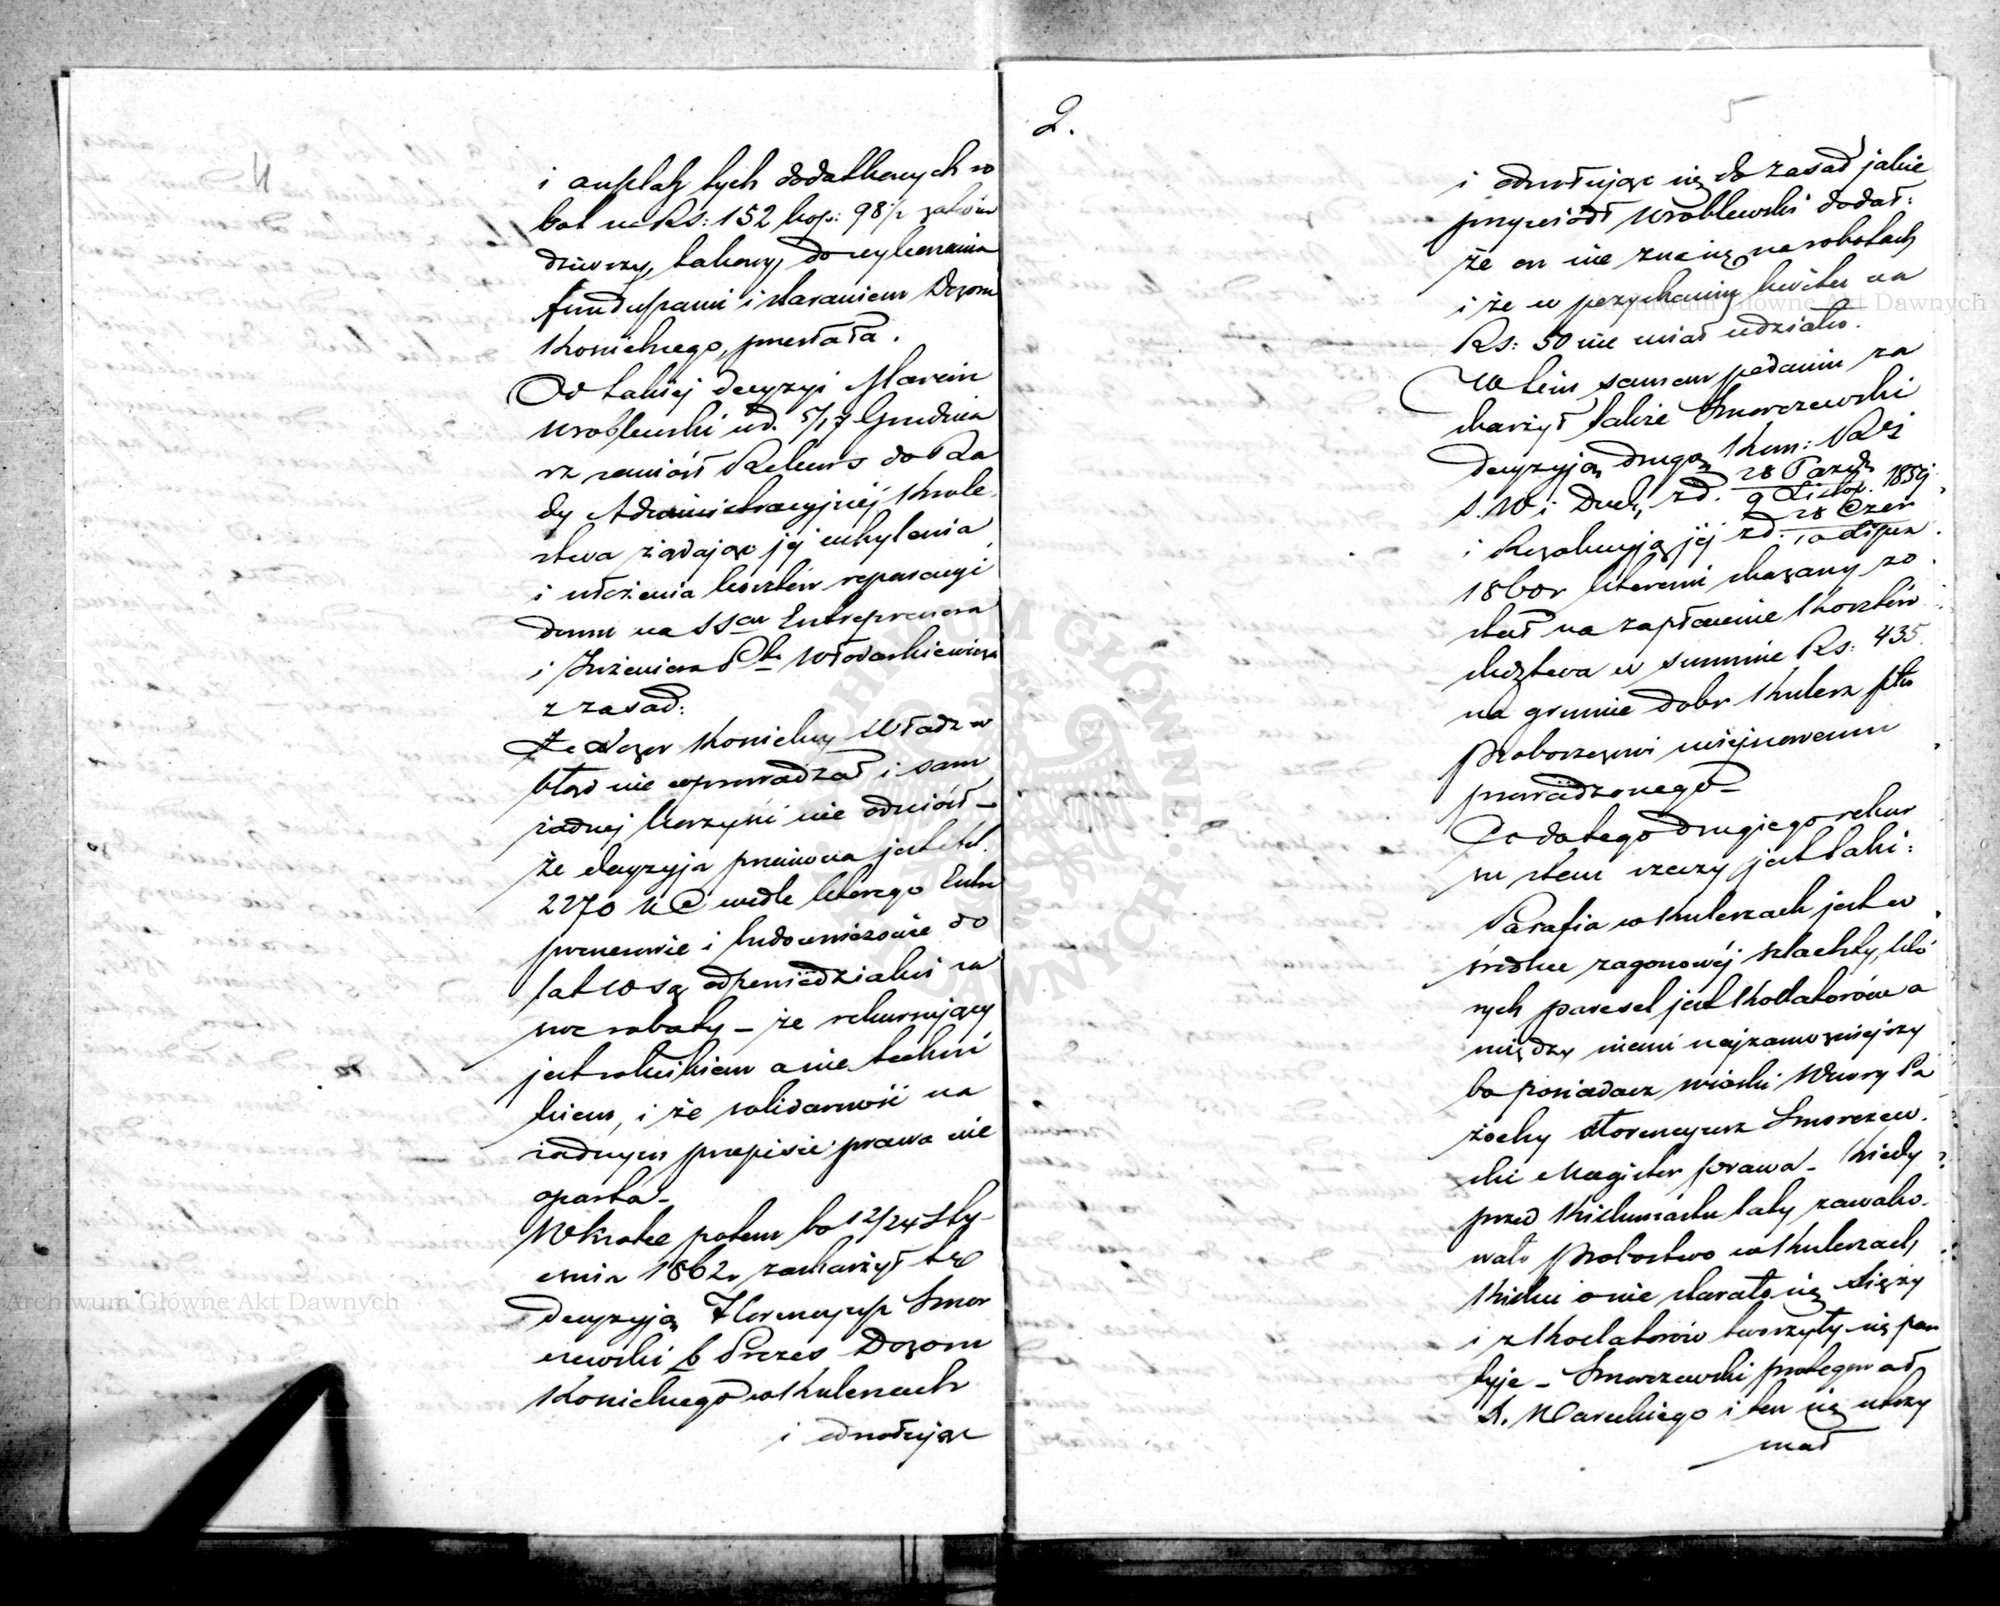 4
i anszlag tych dodatkowych ro
bot na Rs: 152 kop: 98½ zatwier
dziwszy, takowy, do wykonania
funduszami i staraniem Dozoru
Kościelnego, przesłała.
Od takiej decyzyi Marcin
Wroblewski w d. 5/17 Grudnia
rz zaniósł Rekurs do Ra
dy Administracyjnej Króle
stwa żądając jej uchylenia
i włożenia kosztów reparacyi
domu na SSów Entreprenera
i Inżeniera Ptu Włodarkiewicza
z zasad:
Że Dozor Kościelny Władz w
błąd nie wprowadzał i sam
żadnej korzyści nie odniósł –
że decyzyja przeciwna jest art.
2270 KC wedle którego Entre
prenerowie i budowniczowie do
lat 10 są odpowiedzialni za
swe roboty – że rekurujący
jest rolnikiem a nie techni
kiem, i że solidarność na
żadnym przepisie prawa nie
oparta –
Wkrótce potem bo 12/24 Sty-
cznia 1862r zaskarżył tę
decyzyją Florencyusz Smor
czewski b Prezes Dozoru
Kościelnego w Kuleszach
i odwołując
2.
5
i odwołując się do zasad jakie
przywiódł Wroblewski dodał:
że on nie zna się na robotach
i że w pozyskaniu kwitu na
Rs: 50 nie miał udziału.
W tém samem podaniu za
skarżył także Smorczewski
decyzyją drugą Kom: Rzą
S. W i Duch, z d. 28 Paźdź
9 Listop. 1859
i Rezolucyją jej z d. 28 Czer
10 Lipca
1860r któremi skazany zo
stał na zapłacenie Kosztów
śledztwa w summie Rs: 435
na gruncie dobr Kulesz ptko
Proboszczowi miejscowemu
prowadzonego –
Co do tego drugiego rekur
su stan rzeczy jest taki:
Parafia w Kuleszach jest w
środku zagonowéj szlachty, któ
rych paręset jest Kollatorów a
między niemi najzamożniejszy
bo posiadacz wioski Wnory Pa
żochy Florencyusz Smorczew.
ski Magister prawa – Kiedy
przed Kilkunastu laty zawako-
wało Probostwo w Kuleszach,
Kilku o nie starało się Xięży
i z Kollatorów tworzyły się par
tyje – Smorczewski protegował
X. Wareckiego i ten się utrzy
mał